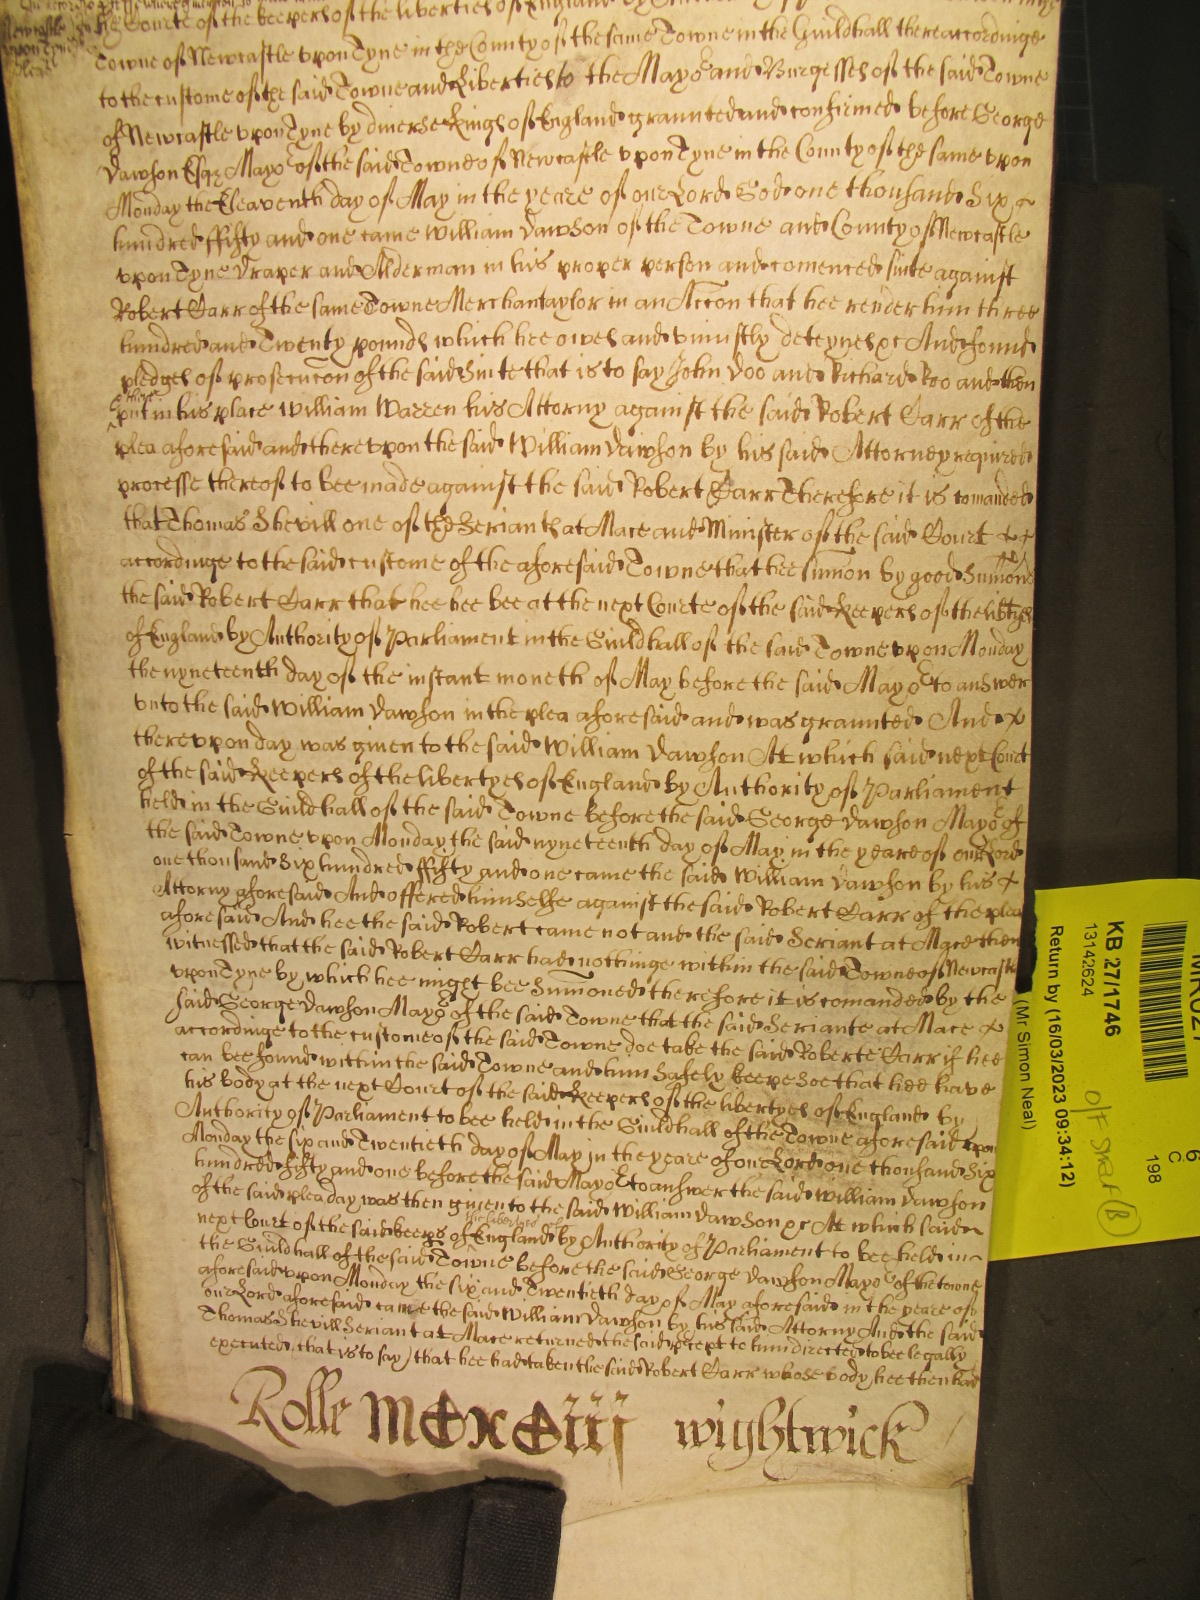 the Courte of the keepers of the liberties of England by
Newcastle
upon Tyne
Towne of Newcastle upon Tyne in the County of the same Towne in the Guildhall there accordinge
to the custome of the said Towne and Liberties to the Mayor and Burgesses of the said Towne
of Newcastle upon Tyne by diverse Kings of England graunted and confirmed before George
Dawson Esqr Mayor of the said Towne of Newcastle upon Tyne in the County of the same upon
Monday the Eleaventh day of May in the yeare of our Lord God one thousand Six
hundred ffifty and one came William Dawson of the Towne and County of Newcastle
upon Tyne Draper and Alderman in his proper person and comenced suite against
Robert Carr of the same Towne Merchantaylor in an Accon that hee render him three
hundred and Twenty pounds which hee owes and uniustly deteynes &c And found
pledges of prosecucon of the said Suite that is to say John Doo and Richard Roo and then
& there
put in his place William Warren his Attorny against the said Robert Carr of the
plea aforesaid and thereupon the said William Dawson by his said Attorney required
processe thereof to bee made against the said Robert Carr Therefore it is comanded
that Thomas Shevill one of the Seriants at Mace and Minister of the said Court
accordinge to the said custome of the aforesaid Towne that hee sumon by good Sumons
the said Robert Carr that hee bee bee at the next Courte of the said Keepers of the libtyes
of England by Authority of Parliament in the Guildhall of the said Towne upon Monday
the nyneteenth day of the instant moneth of May before the said Mayor to answer
unto the said William Dawson in the plea aforesaid and was graunted And
thereupon day was given to the said William Dawson Att which said next Court
of the said Keepers of the libertyes of England by Authority of Parliament
held in the Guildhall of the said Towne before the said George Dawson Mayor of
the said Towne upon Monday the said nyneteenth day of May in the yeare of our Lord
one thousand Six hundred ffifty and one came the said William Dawson by his
Attorny aforesaid And offered himselfe against the said Robert Carr of the plea
aforesaid And hee the said Robert came not and the said Seriant at Mace then
witnessed that the said Robert Carr had nothinge within the said Towne of Newcastle
upon Tyne by which hee might bee Sumoned therefore it is comanded by the
said George Dawson Mayor of the said Towne that the said Seriante at Mace
accordinge to the custome of the said Towne doe take the said Roberte Carr if hee
can bee found within the said Towne and him safely keepe soe that hee have
his body at the next Court of the said Keepers of the libertyes of England by
Authority of Parliament to bee held in the Guildhall of the Towne aforesaid upon
Monday the six and Twentieth day of May in the yeare of our Lord one thousand Six
hundred fifty and one before the said Mayor to answer the said William Dawson
of the said plea day was then given to the said William Dawson &c At which said
the liberties of
next Court of the said keeps of England by Authority of Parliament to bee held in
the Guildhall of the said Towne before the said George Dawson Mayor of the towne
aforesaid upon Monday the six and Twentieth day of May aforesaid in the yeare of
our Lord aforesaid came the said William Dawson by his said Attorny And the said
Thomas Shevill Seriant at Mace returned the said precept to him directed to bee legally
executed (that is to say) that hee had taken the said Robert Carr whose body hee then had
Rolle MCXCiiij wightwick
KB 27/1746
13142624
Return by (16/03/2023 09:34:12)
(Mr Simon Neal)
C
198